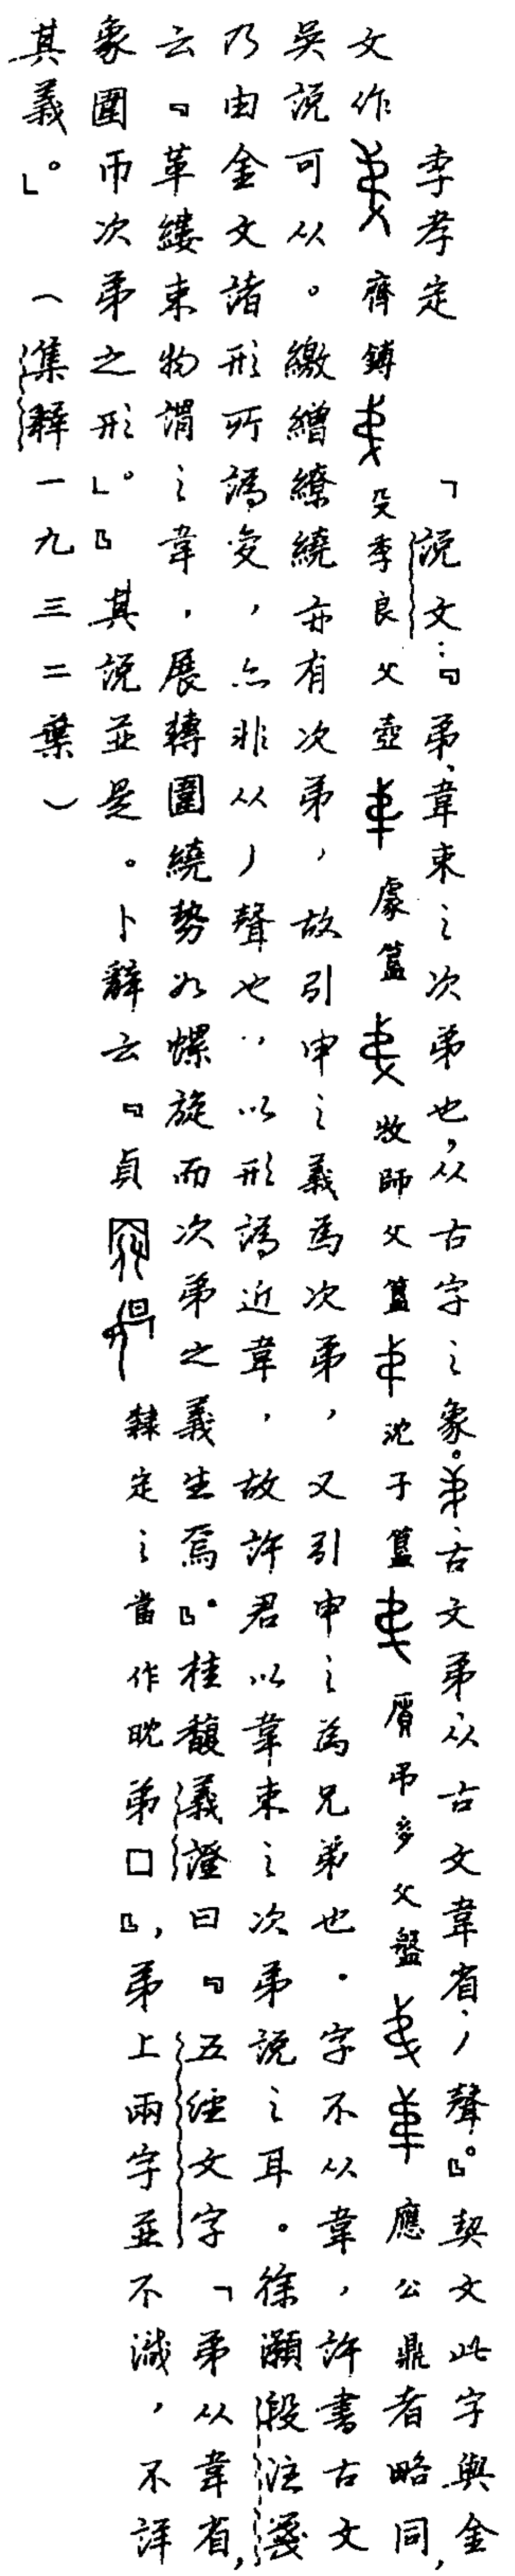 李孝定　「說文：『弟、韋束之次弟也，从古字之象。、古文弟从古文韋省，丿聲。』契文此字與金
文作 齊鎛 殳季良父壺 䖒簋 牧師父簋 沈子簋 㝬弔多父盤 應公鼎者略同，
吳說可从。繳繒繚繞亦有次弟，故引申之義為次弟，又引申之為兄弟也．字不从韋，許書古文
乃由金文諸形所譌變，亦非从丿聲也．，以形譌近韋，故許君以韋束之次弟說之耳。徐灝段注箋
云『革縷束物謂之韋，展轉圍繞勢如螺旋而次弟之義生焉』。桂馥義證曰『五經文字「弟从韋省，
象圍帀次弟之形」。』其說並是。卜辭云『貞 隸定之當作眈弟□』，弟上兩字並不識，不詳
其義。」　（集釋一九三二葉）